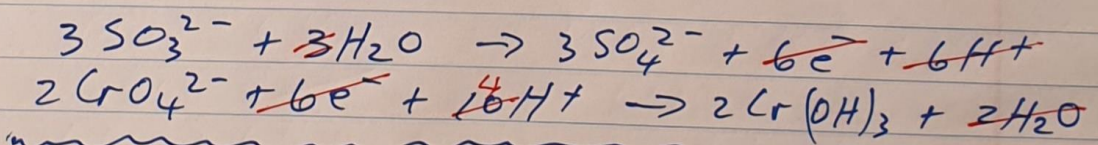 3 SO₃²⁻ + 3H₂O → 3 SO₄²⁻ + 6e⁻ + 6H⁺
2 CrO₄²⁻ + 6e⁻ + 10H⁺ → 2 Cr(OH)₃ + 2H₂O